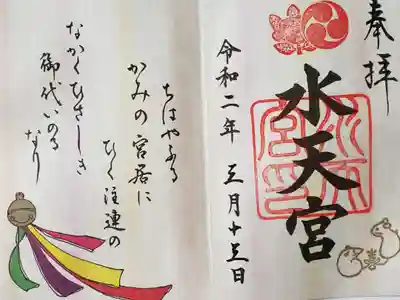 奉拝
水天宮
令和二年 三月十三日
ちはやふる
かみの宮居に
ひく注連の
なかくひさしき
御代いのる
なり